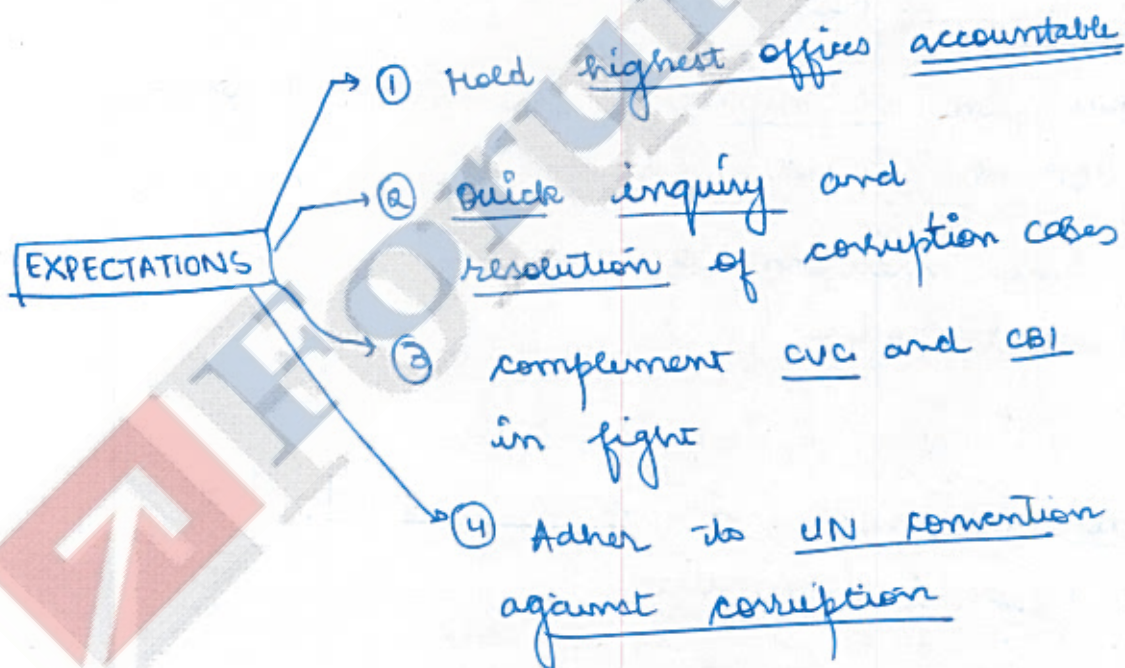 ① Hold highest offices accountable
② Quick inquiry and
resolution of corruption cases
EXPECTATIONS
③ complement CVC and CBI
in fight
④ Adher to UN convention
against corruption
Forum